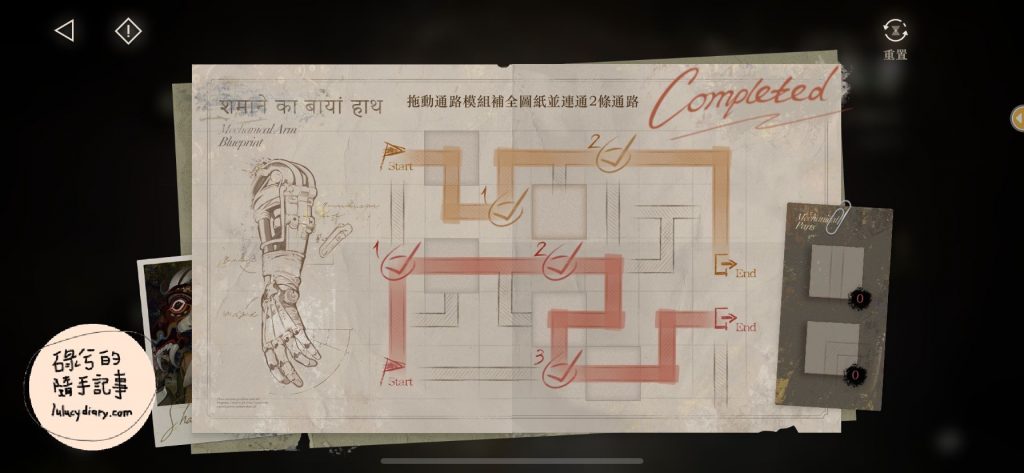 重置
शमाने का बायां हाथ
拖動通路模組補全圖紙並連通2條通路
Completed
Mechanical Arm
Blueprint
Start
2
1
1
2
End
Mechanical
Parts
0
End
0
3
Start
碌兮的
隨手記事
lulucydiary.com